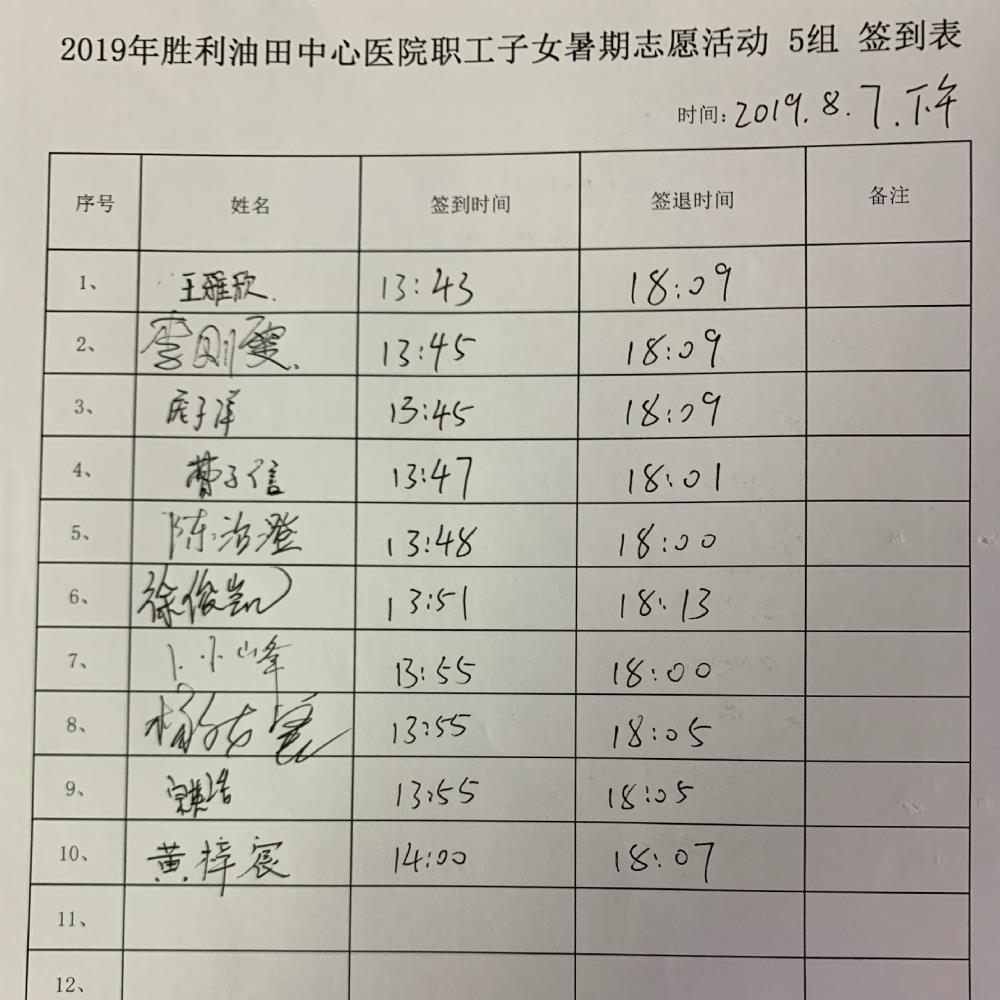 2019年胜利油田中心医院职工子女暑期志愿活动 5组 签到表
时间:2019.8.7.下午
序号 姓名 签到时间 签退时间 备注
1、 王雅欣. 13:43 18:09
2、 李刚雯. 13:45 18:09
3、 子洋 13:45 18:09
4、 曹子信 13:47 18:01
5、 陈治澄 13:48 18:00
6、 徐俊凯 13:51 18:13
7、 卜小峰 13:55 18:00
8、 杨 13:55 18:05
9、 13:55 18:05
10、 黄梓宸 14:00 18:07
11、
12、